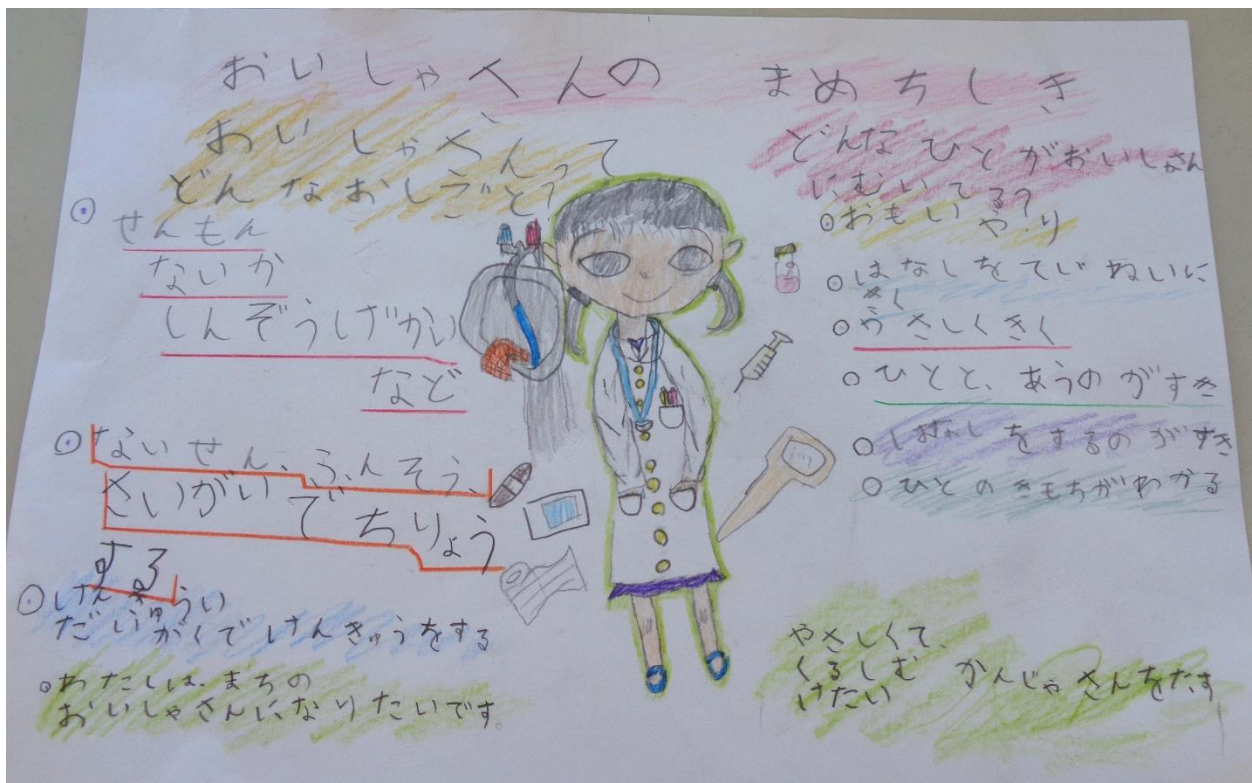 おいしゃさんの まめちしき
おいしゃさんって
どんなおしごと？
せんもん
ないか
しんぞうげかい
など
ないせん、ふんそう、
さいがいでちりょう
する
けんきゅうい
だいがくでけんきゅうをする
わたしは、まちの
おいしゃさんになりたいです。
どんなひとがおいしゃさん
にむいてる？
おもいやり
はなしをていねいに
きく
やさしくきく
ひとと、あうのがすき
はなしをするのがすき
ひとのきもちがわかる
やさしくて、
くるしむ かんじゃさんをたす
けたい